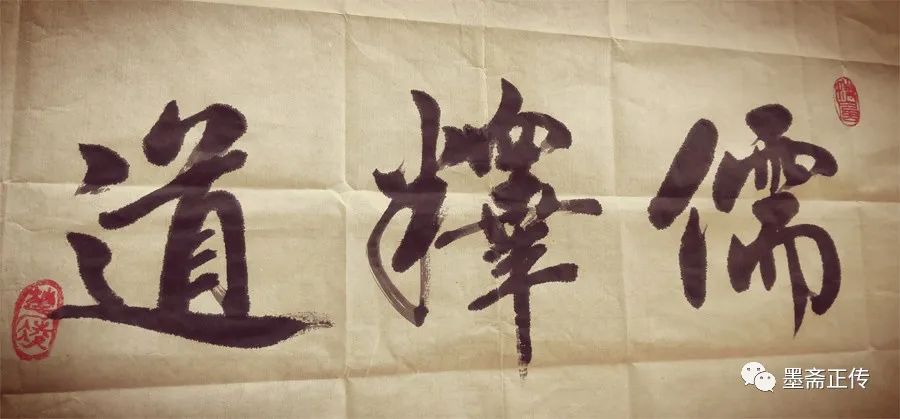 儒釋道
墨斋正传